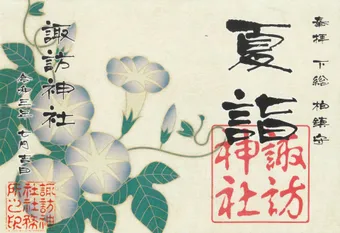 奉拝 下総 柏鎮守
夏詣
諏訪
神社
諏訪神社
令和三年 七月
諏訪神
社社務
所之印